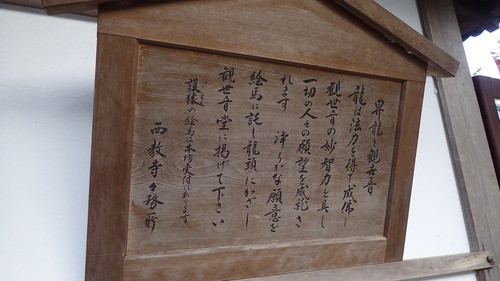 昇龍と観世音
龍は法力を得て成佛し
観世音の妙智力を具し
一切の人々の願望を成就さ
れます 浄らかな願意を
絵馬に託し龍頭にかざし
観世音堂に掲げて下さい
護猿の絵馬は本坊受付にあります
西教寺